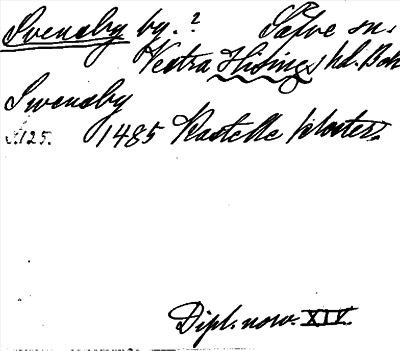 Svensby by.? Sätve sn.
Vestra Hisings hd. Boh
Swensby
S.125. 1485 Kastelle kloster
Dipl. norv. XIV.